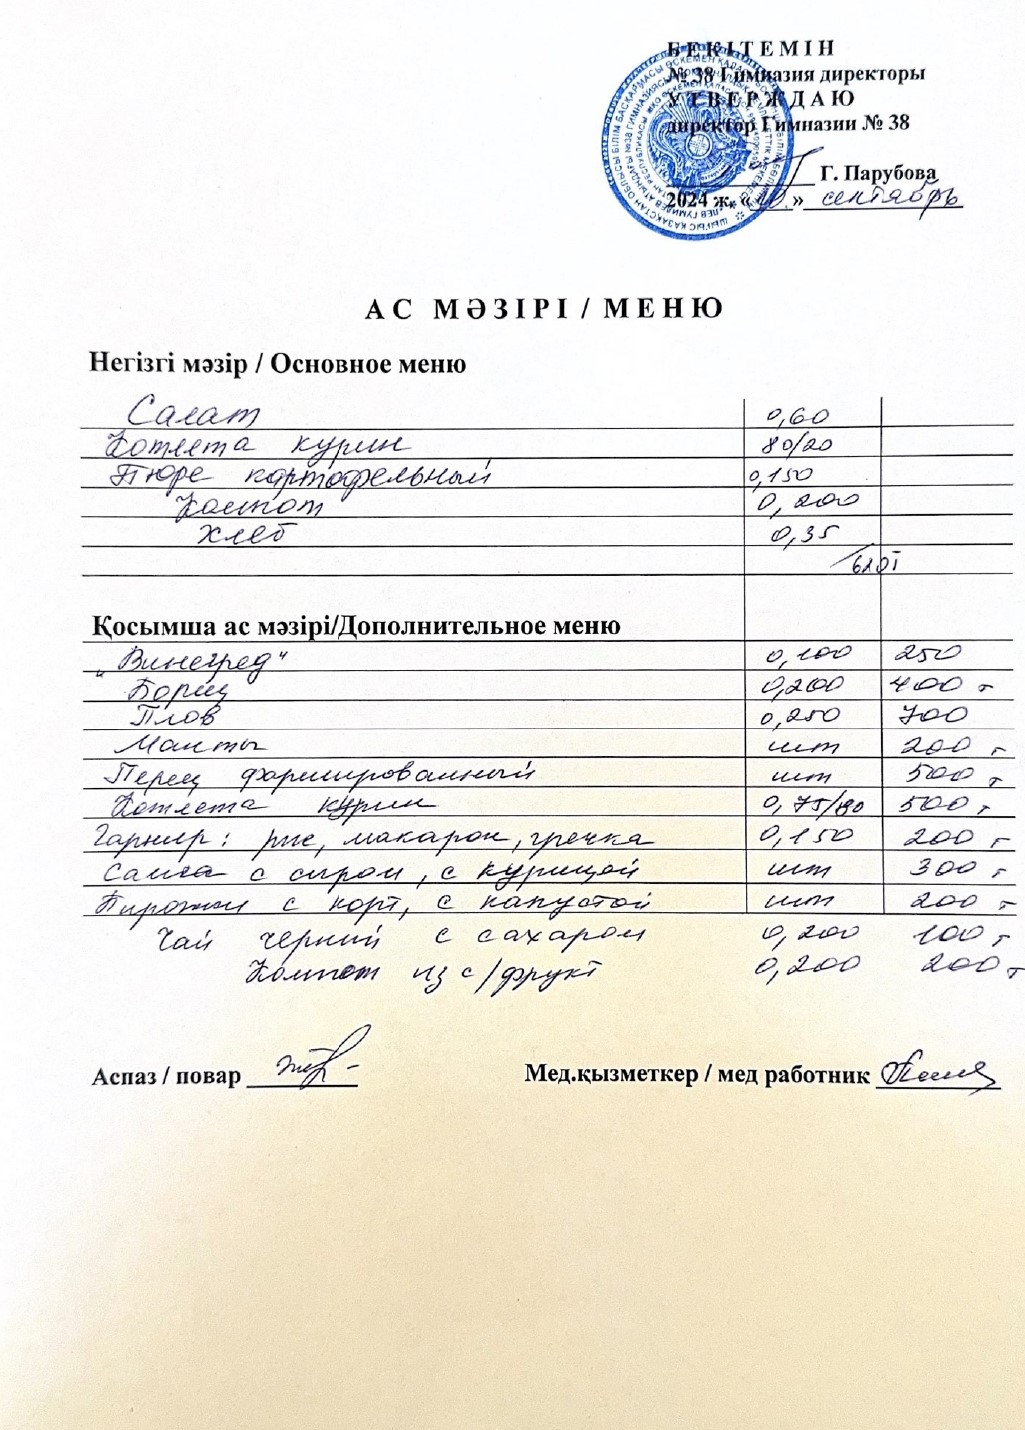 БЕКІТЕМІН
№ 38 Гимназия директоры
УТВЕРЖДАЮ
директор Гимназии № 38
Г. Парубова
2024 ж. « » сентябрь
АС МӘЗІРІ / МЕНЮ
Негізгі мәзір / Основное меню
Салат 0,60
Котлета курин 80/20
Пюре картофельный 0,150
Компот 0,200
Хлеб 0,35
620т
Қосымша ас мәзірі/Дополнительное меню
"Винегред" 0,100 250
Борщ 0,200 400 т
Плов 0,250 700
Манты шт 200 т
Перец фаршированный шт 500 т
Котлета курин 0,75/ 500 т
Гарнир: рис, макарон, гречка 0,150 200 т
Самса с сыром, с курицей шт 300 т
Пирожки с карт, с капустой шт 200 т
Чай черний с сахаром 0,200 100 т
Компот из с/фрукт 0,200 200 т
Аспаз / повар
Мед.қызметкер / мед работник